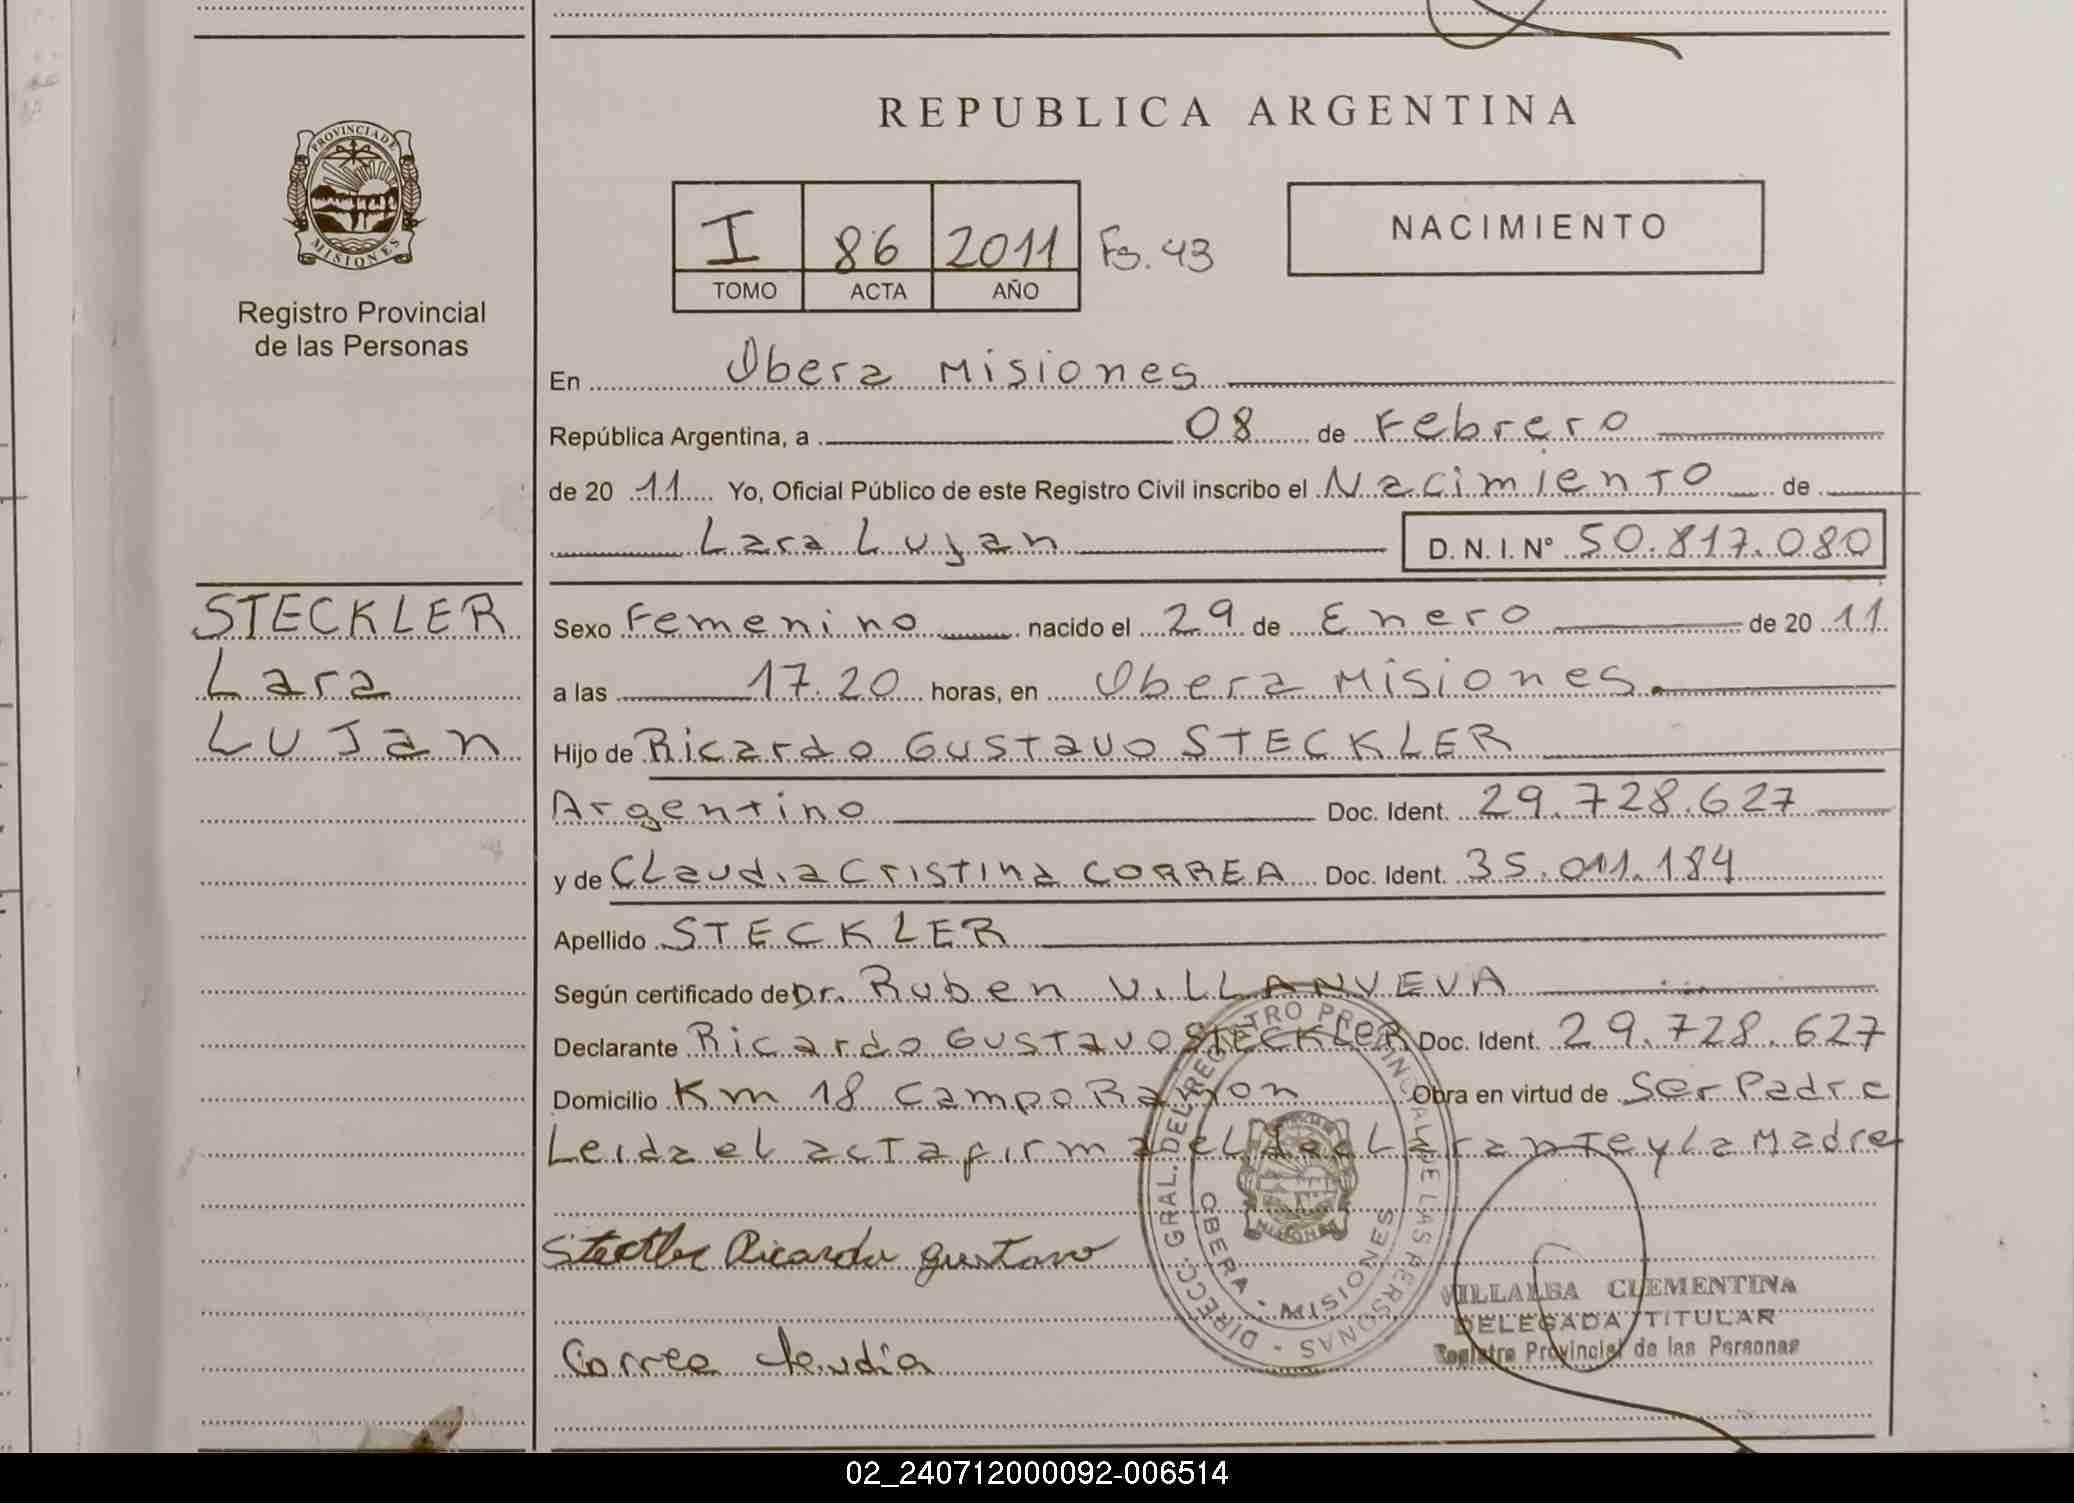 REPUBLICA ARGENTINA
PROVINCIA DE
MISIONES
Registro Provincial
de las Personas
I 86 2011 Fs. 43
TOMO ACTA AÑO
NACIMIENTO
En Obera Misiones
República Argentina, a 08 de Febrero
de 20 11 Yo, Oficial Público de este Registro Civil inscribo el Nacimiento de
Lara Lujan D. N. I. Nº 50.817.080
STECKLER
Lara
Lujan
Sexo Femenino nacido el 29 de Enero de 20 11
a las 17.20 horas, en Obera Misiones.
Hijo de Ricardo Gustavo STECKLER
Argentino Doc. Ident. 29.728.627
y de Claudia Cristina CORREA Doc. Ident. 35.011.184
Apellido STECKLER
Según certificado de Dr. Ruben VILLANUEVA
Declarante Ricardo Gustavo STECKLER Doc. Ident. 29.728.627
Domicilio Km 18 Campo Ramon Obra en virtud de Ser Padre
Leida el acta firma el declarante y La Madre
Steckler Ricardo Gustavo
Correa Claudia
DIRECC. GRAL. DEL REGISTRO PROVINCIAL DE LAS PERSONAS
OBERA - MISIONES
MISIONES
VILLALBA CLEMENTINA
DELEGADA TITULAR
Registro Provincial de las Personas
02_240712000092-006514